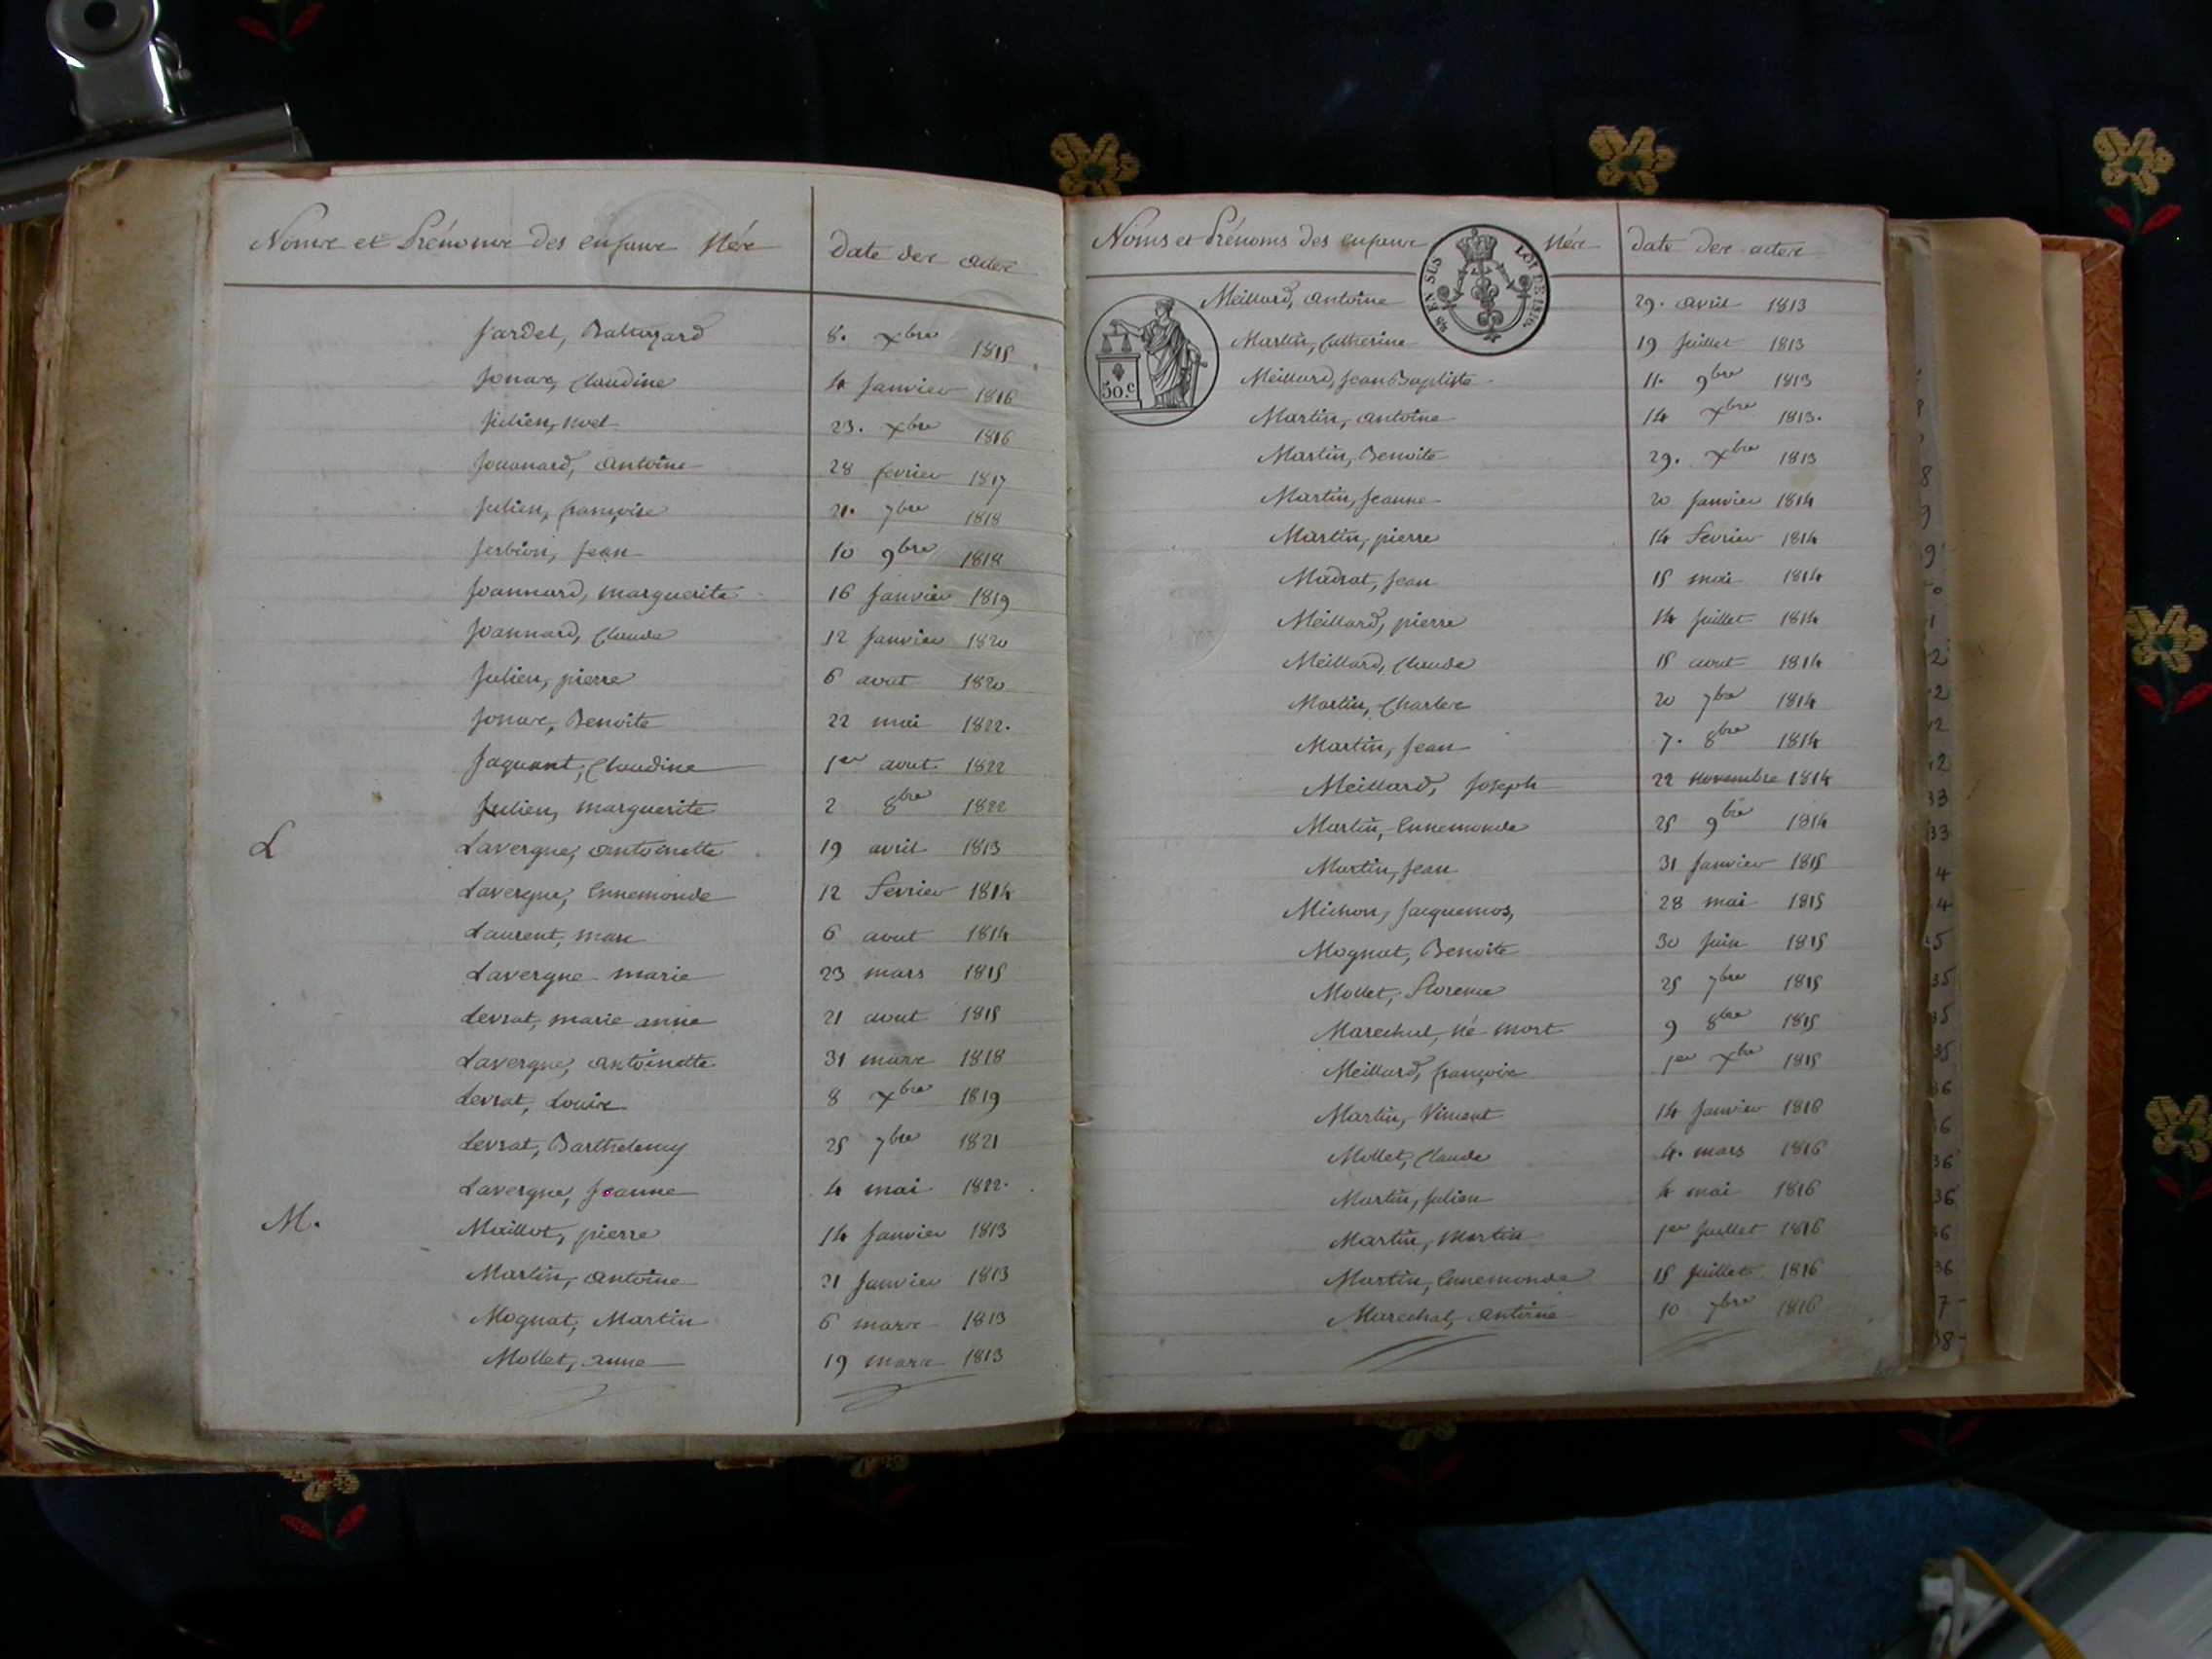 Noms et Prénoms des enfans Nés date des actes
Jardet, Baltazard 8. Xbre 1815
Jonas, Claudine 4 Janvier 1816
Julien, Noel 23. Xbre 1816
Jouanard, Antoine 28 fevrier 1817
Julien, françoise 21. 7bre 1818
Jerbion, Jean 10 9bre 1818
Joannard, marguerite 16 Janvier 1819
Joannard, Claude 12 Janvier 1820
Julien, pierre 6 aout 1820
Jonas, Benoite 22 mai 1822.
Jaquant, Claudine 1er aout 1822
Julien, marguerite 2 8bre 1822
L Lavergne, antoinette 19 avril 1813
Lavergne, Ennemonde 12 Fevrier 1814
Laurent, marc 6 aout 1814
Lavergne marie 23 mars 1815
Levrat, marie anne 21 aout 1815
Lavergne, antoinette 31 mars 1818
Levrat, Louise 8 Xbre 1819
Levrat, Barthelemy 25 7bre 1821
Lavergne, Jeanne 4 mai 1822.
M. Maillot, pierre 14 Janvier 1813
Martin, antoine 21 Janvier 1813
Mognat, Martin 6 mars 1813
Mollet, anne 19 mars 1813
Noms et Prénoms des enfans Nés date des actes
48 EN SUS LOI DE 1816.
50.c
Meillard, antoine 29. avril 1813
Martin, Catherine 19 Juillet 1813
Meillard, Jean Baptiste 11. 9bre 1813
Martin, antoine 14 Xbre 1813.
Martin, Benoite 29. Xbre 1813
Martin, Jeanne 20 Janvier 1814
Martin, pierre 14 Fevrier 1814
Madrat, Jean 15 mai 1814
Meillard, pierre 14 Juillet 1814
Meillard, Claude 15 aout 1814
Martin, Charles 20 7bre 1814
Martin, Jean 7. 8bre 1814
Meillard, Joseph 22 Novembre 1814
Martin, Ennemonde 25 9bre 1814
Martin, Jean 31 Janvier 1815
Michon, Jacquemos, 28 mai 1815
Mognat, Benoite 30 Juin 1815
Mollet, Florence 25 7bre 1815
Marechal, né mort 9 8bre 1815
Meillard, françois 1er Xbre 1815
Martin, Vincent 14 Janvier 1816
Mollet, Claude 4. mars 1816
Martin, Julien 4 mai 1816
Martin, Martin 1er Juillet 1816
Martin, Ennemonde 15 Juillet 1816
Marechal, Antoine 10 7bre 1816